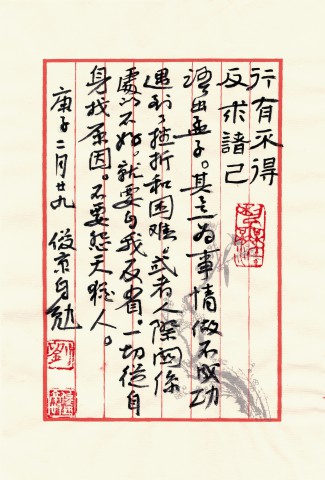 行有不得
反求諸己
語出孟子。其意為事情做不成功
遇到了挫折和困难或者人際關係
處以不好。就要自我反省一切從自
身找原因。不要怨天尤人。
庚子二月廿九 俊京自勉